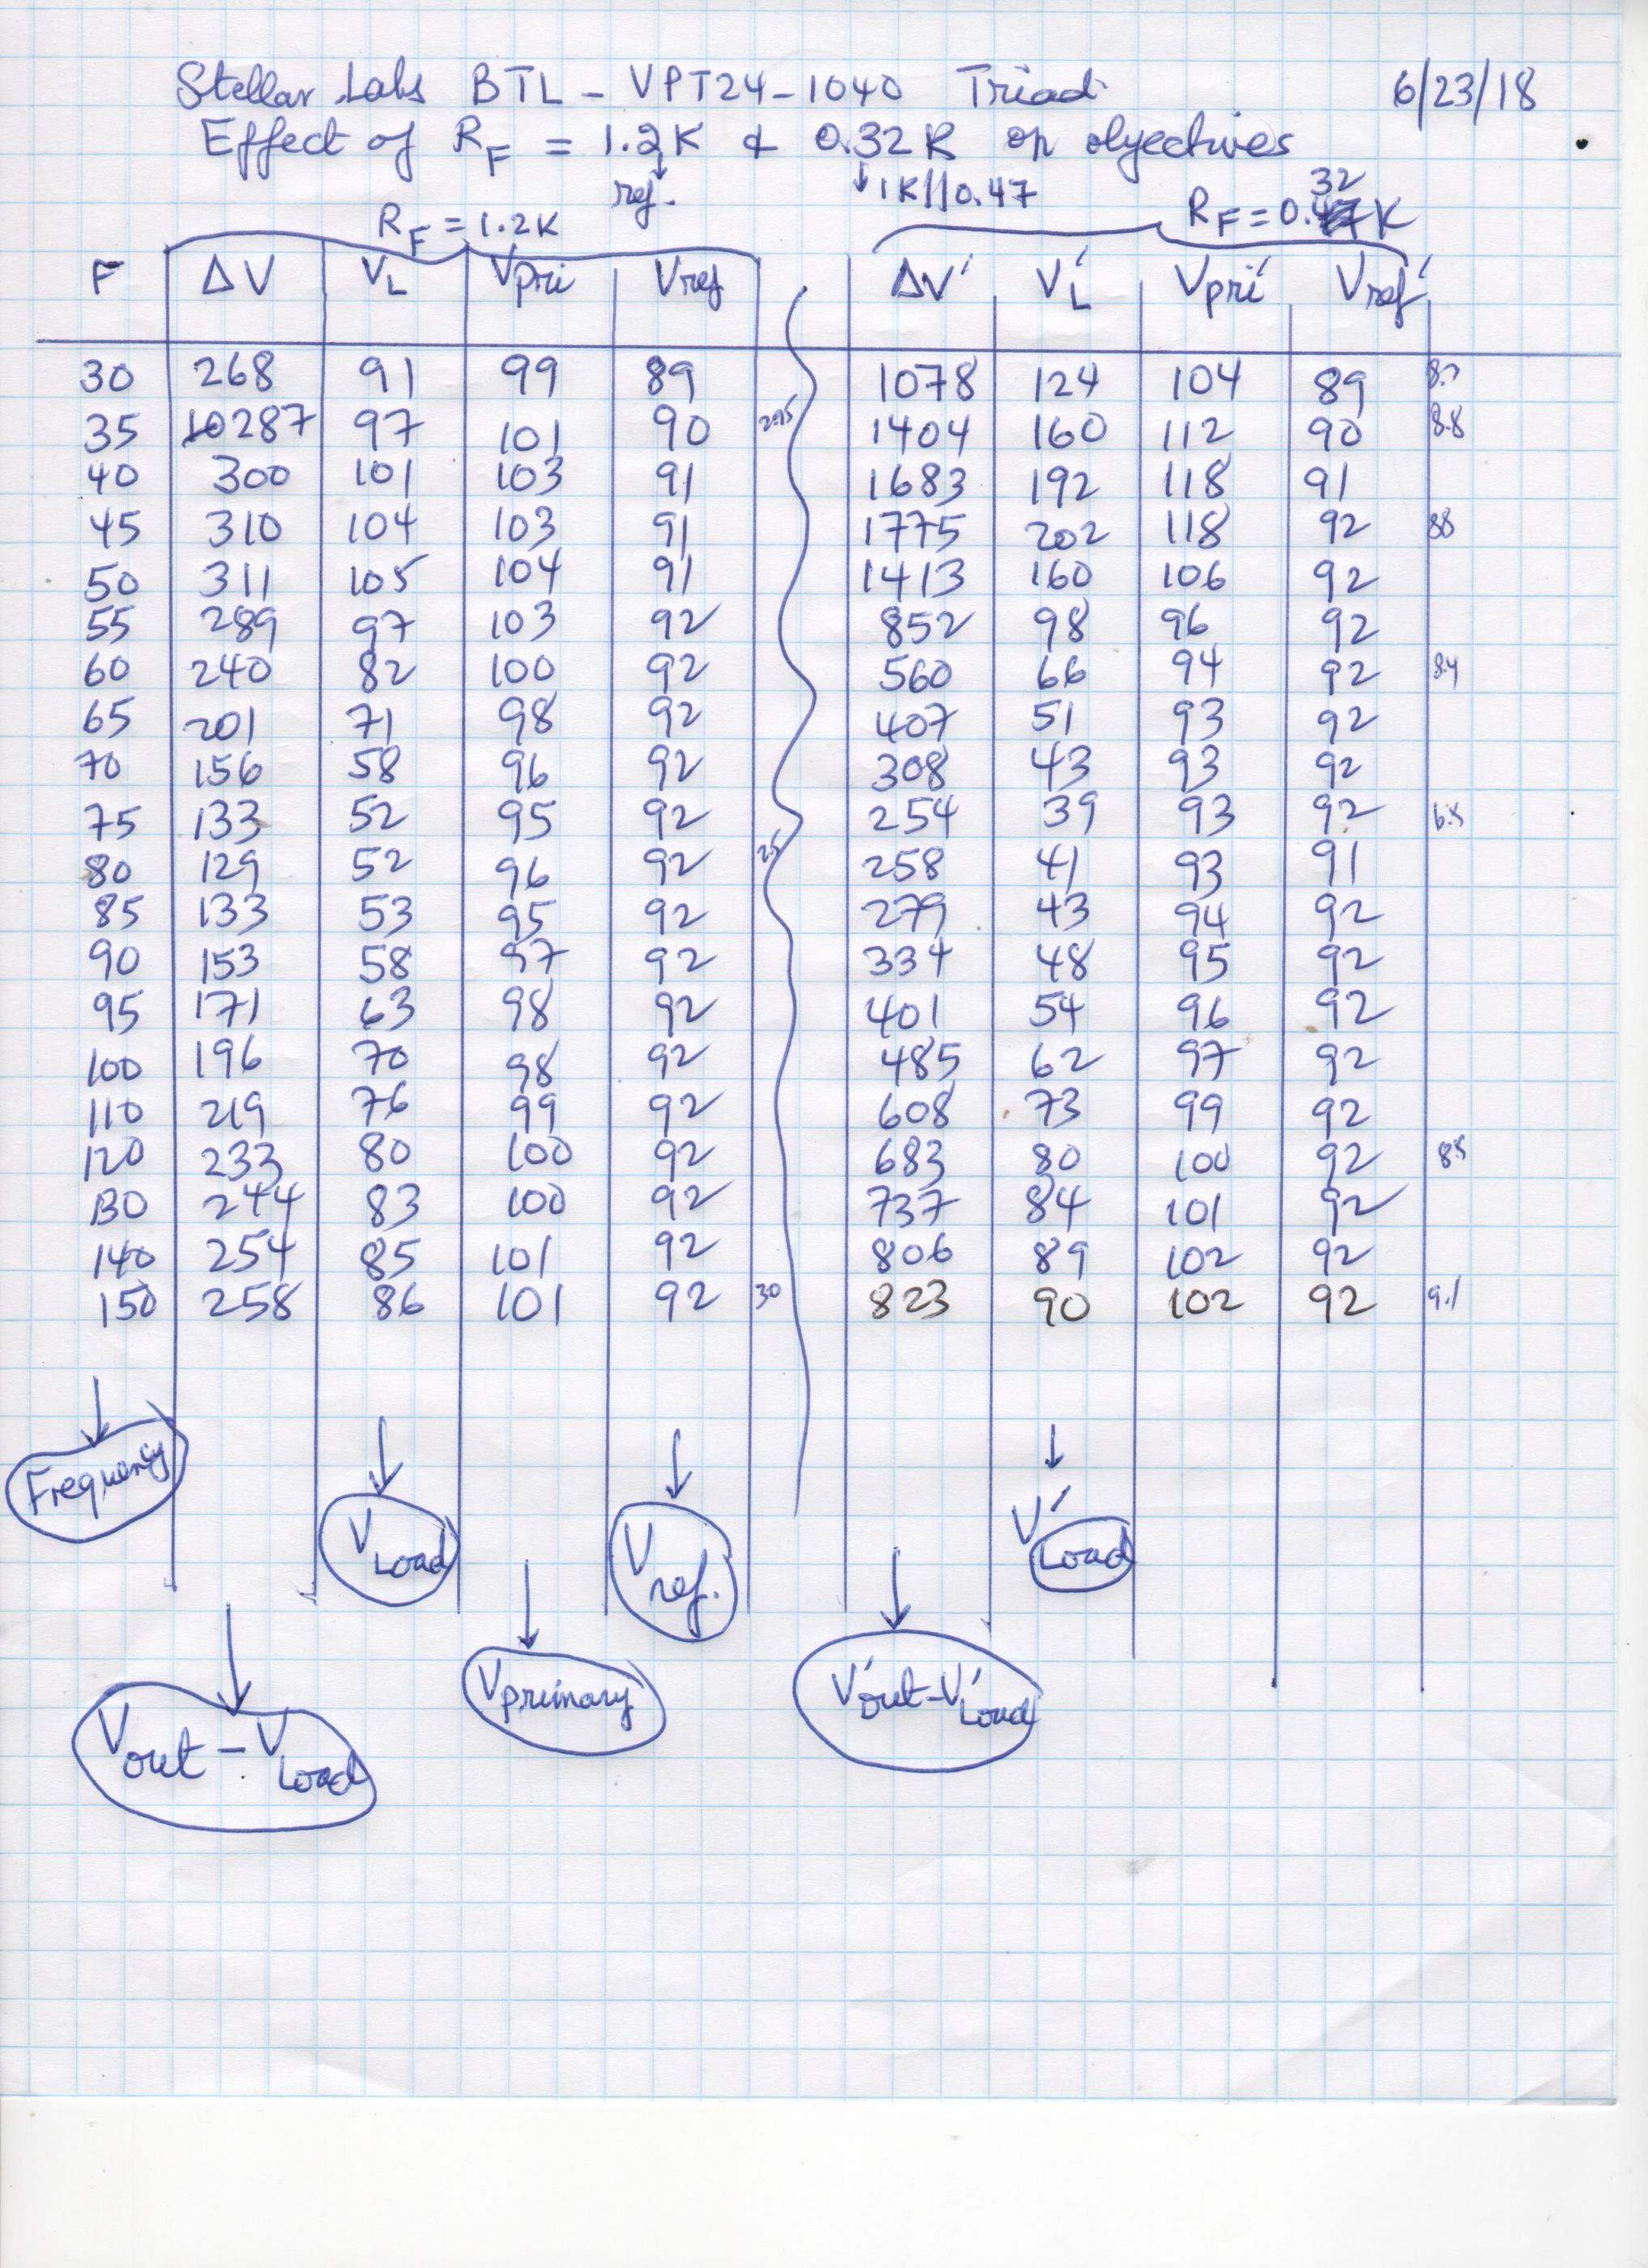 Stellar Labs BTL - VPT24-1040 Triad 6/23/18
Effect of RF = 1.2K & 0.32K on objectives
ref. 1K||0.47
RF = 1.2K RF = 0.32K
F ΔV VL Vpri Vref ΔV' VL' Vpri' Vref'
30 268 91 99 89 1078 124 104 89
35 287 97 101 90 1404 160 112 90 8.8
40 300 101 103 91 1683 192 118 91
45 310 104 103 91 1775 202 118 92 88
50 311 105 104 91 1413 160 106 92
55 289 97 103 92 852 98 96 92
60 240 82 100 92 560 66 94 92 8.4
65 201 71 98 92 407 51 93 92
70 156 58 96 92 308 43 93 92
75 133 52 95 92 254 39 93 92 6.5
80 129 52 96 92 25 258 41 93 91
85 133 53 95 92 279 43 94 92
90 153 58 97 92 334 48 95 92
95 171 63 98 92 401 54 96 92
100 196 70 98 92 485 62 97 92
110 219 76 99 92 608 73 99 92
120 233 80 100 92 683 80 100 92 8.5
130 244 83 100 92 737 84 101 92
140 254 85 101 92 806 89 102 92
150 258 86 101 92 30 823 90 102 92 9.1
Frequency
VLoad
Vref.
V'Load
Vprimary
V'out-V'Load
Vout - VLoad